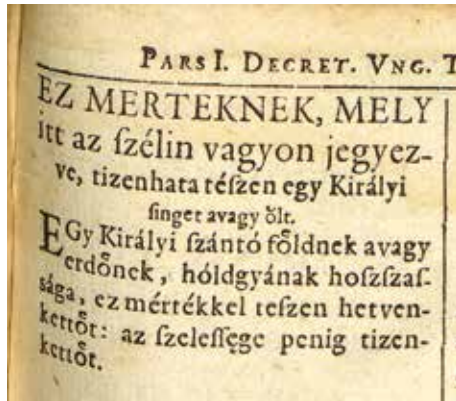 PARS I. DECRET. VNG. T
EZ MERTEKNEK, MELY
itt az ſzélin vagyon jegyez-
ve, tizenhata téſzen egy Királyi
ſinget avagy ŏlt.
EGy Királyi ſzántó fŏldnek avagy
erdŏnek, hóldgyának hoſzſzaſ-
sága, ez mértékkel teſzen hetven-
kettŏt: az ſzeleſſęge penig tizen-
kettŏt.